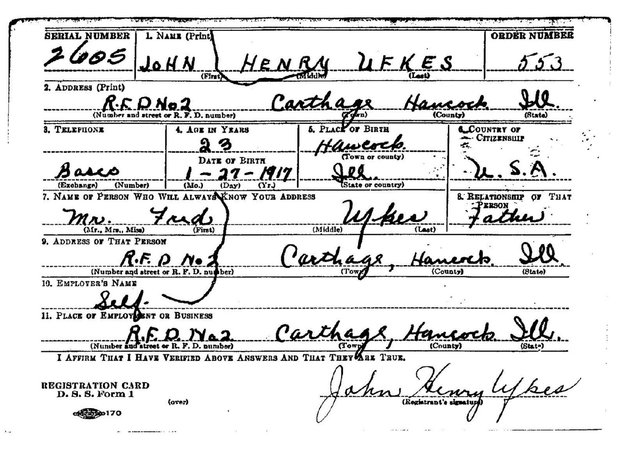 SERIAL NUMBER 1. NAME (Print) ORDER NUMBER
2605 JOHN HENRY UFKES 553
(First) (Middle) (Last)
2. ADDRESS (Print)
R.F.D No 2 Carthage Hancock Ill.
(Number and street or R. F. D. number) (Town) (County) (State)
3. TELEPHONE 4. AGE IN YEARS 5. PLACE OF BIRTH 6. COUNTRY OF CITIZENSHIP
23 Hancock
DATE OF BIRTH (Town or county)
Basco 1-27-1917 Ill. U.S.A.
(Exchange) (Number) (Mo.) (Day) (Yr.) (State or country)
7. NAME OF PERSON WHO WILL ALWAYS KNOW YOUR ADDRESS 8. RELATIONSHIP OF THAT PERSON
Mr. Fred Ufkes Father
(Mr., Mrs., Miss) (First) (Middle) (Last)
9. ADDRESS OF THAT PERSON
R.F.D No 2 Carthage, Hancock Ill.
(Number and street or R. F. D. number) (Town) (County) (State)
10. EMPLOYER'S NAME
Self.
11. PLACE OF EMPLOYMENT OR BUSINESS
R.F.D. No 2 Carthage, Hancock Ill.
(Number and street or R. F. D. number) (Town) (County) (State)
I AFFIRM THAT I HAVE VERIFIED ABOVE ANSWERS AND THAT THEY ARE TRUE.
John Henry Ufkes
REGISTRATION CARD
D. S. S. Form 1 (over) (Registrant's signature)
170